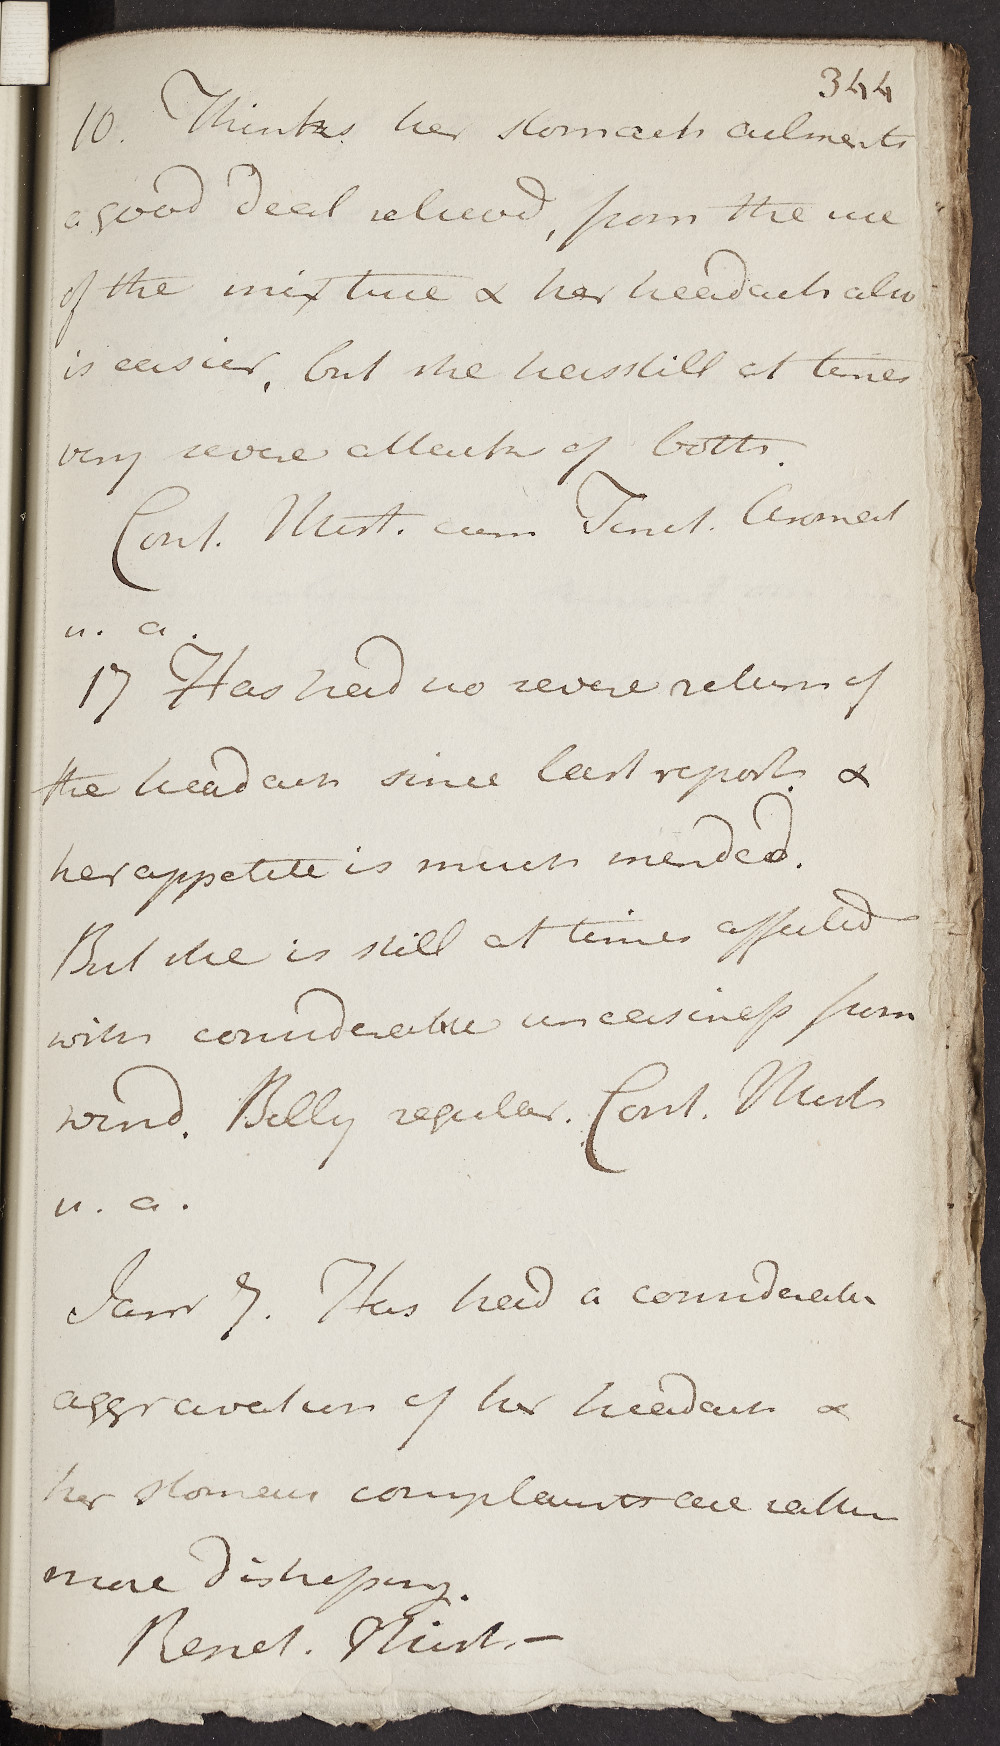 344
10. Thinks her stomach ailments
a good deal relieved, from the use
of the mixture & her headach also
is easier, but she has still at times
very severe attacks of both.
Cont. Mist. cum Tinct. Aromat
u. a.
17 Has had no severe return of
the headach since last report &
her appetite is much mended.
But she is still at times affected
with considerable uneasiness from
wind. Belly regular. Cont. Mist
u. a.
Janr 7. Has had a considerable
aggravation of her headach &
her stomach complaints are rather
more distressing.
Renet. Mist. –